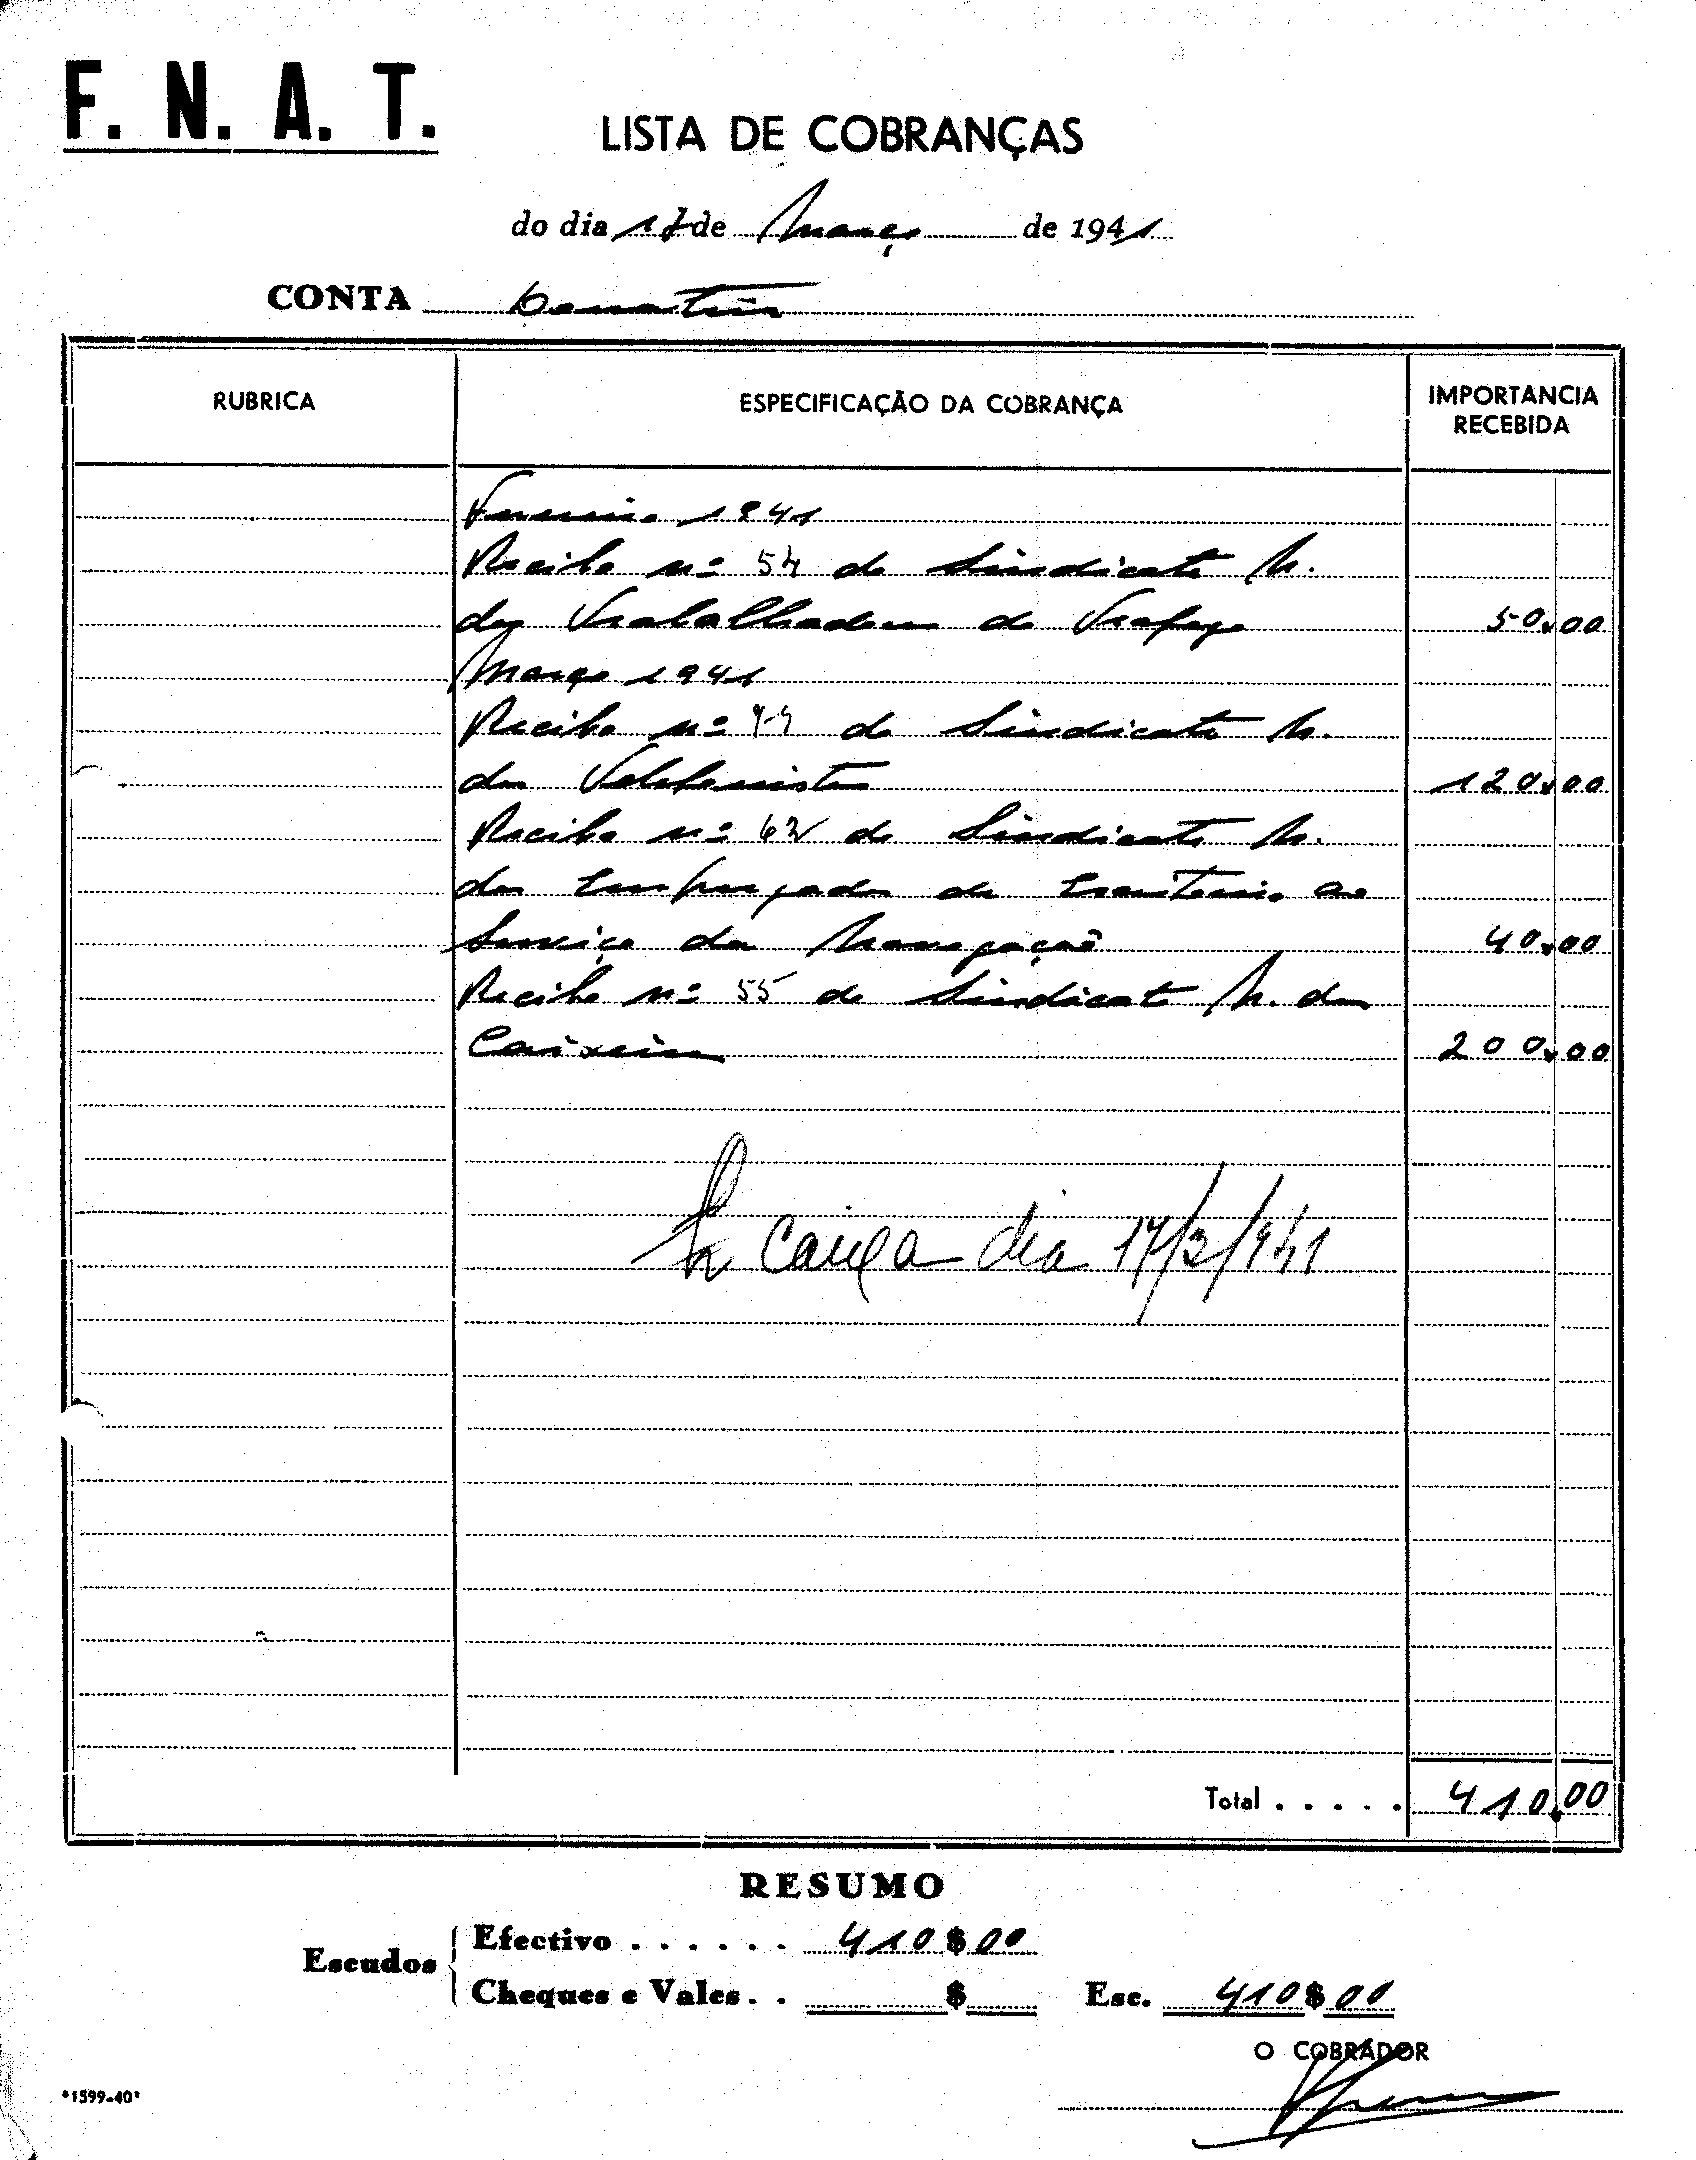 F. N. A. T.
LISTA DE COBRANÇAS
do dia 17 de Março de 1941
CONTA
RUBRICA
ESPECIFICAÇÃO DA COBRANÇA
IMPORTANCIA
RECEBIDA
Fevereiro 1941
Recibo nº 54 do Sindicato N.
dos Trabalhadores do Trafego 50.00
Março 1941
Recibo nº do Sindicato N.
das Telefonistas 120.00
Recibo nº 62 do Sindicato N.
dos Empregados de Escritorio ao
Serviço da Navegação 40.00
Recibo nº 55 do Sindicato N. dos
Caixeiros 200.00
Caixa dia 17/3/941
Total . . . . . 410.00
RESUMO
Escudos
Efectivo . . . . . . 410$00
Cheques e Vales . . $
Esc. 410$00
O COBRADOR
*1599-40*